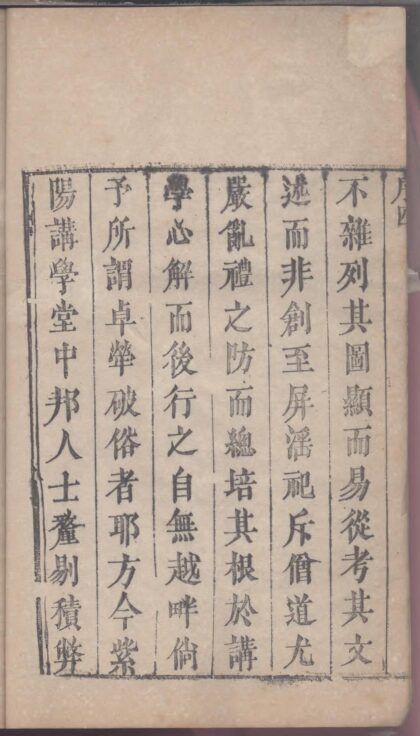 序四
不雜列其圖顯而易從考其文
述而非創至屏滛祀斥僧道尤
嚴亂禮之防而總培其根於講
學必解而後行之自無越畔倘
予所謂卓犖破俗者耶方今紫
陽講學堂中邦人士釐剔積弊